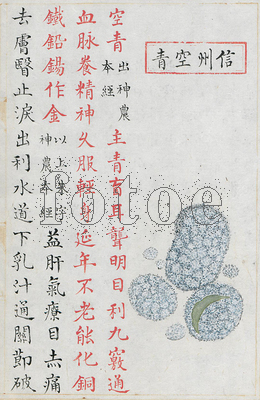 信州空青
空青出神農本經主青盲耳聾明目利九竅通
血脉養精神久服輕身延年不老能化銅
鐵鉛錫作金以上朱字神農本經益肝氣療目赤痛
去膚翳止淚出利水道下乳汁通關節破
fotoe